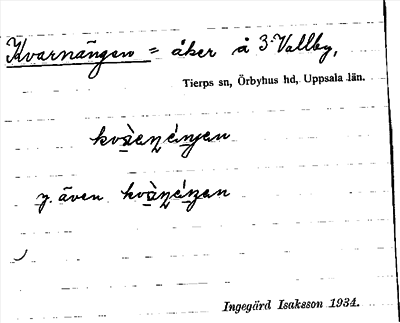 Kvarnängen = åker å 3 Vallby,
Tierps sn, Örbyhus hd, Uppsala län.
y. även
Ingegärd Isaksson 1934.